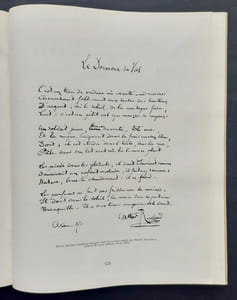 Le Dormeur du Val
C'est un trou de verdure où chante une rivière
Accrochant follement aux herbes des haillons
D'argent ; où le soleil, de la montagne fière,
Luit : c'est un petit val qui mousse de rayons.
Un soldat jeune, bouche ouverte, tête nue,
Et la nuque baignant dans le frais cresson bleu,
Dort ; il est étendu dans l'herbe, sous la nue,
Pâle dans son lit vert où la lumière pleut.
Les pieds dans les glaïeuls, il dort. Souriant comme
Sourirait un enfant malade, il fait un somme :
Nature, berce-le chaudement : il a froid.
Les parfums ne font pas frissonner sa narine ;
Il dort dans le soleil, la main sur sa poitrine
Tranquille. Il a deux trous rouges au côté droit.
Arthur Rimbaud